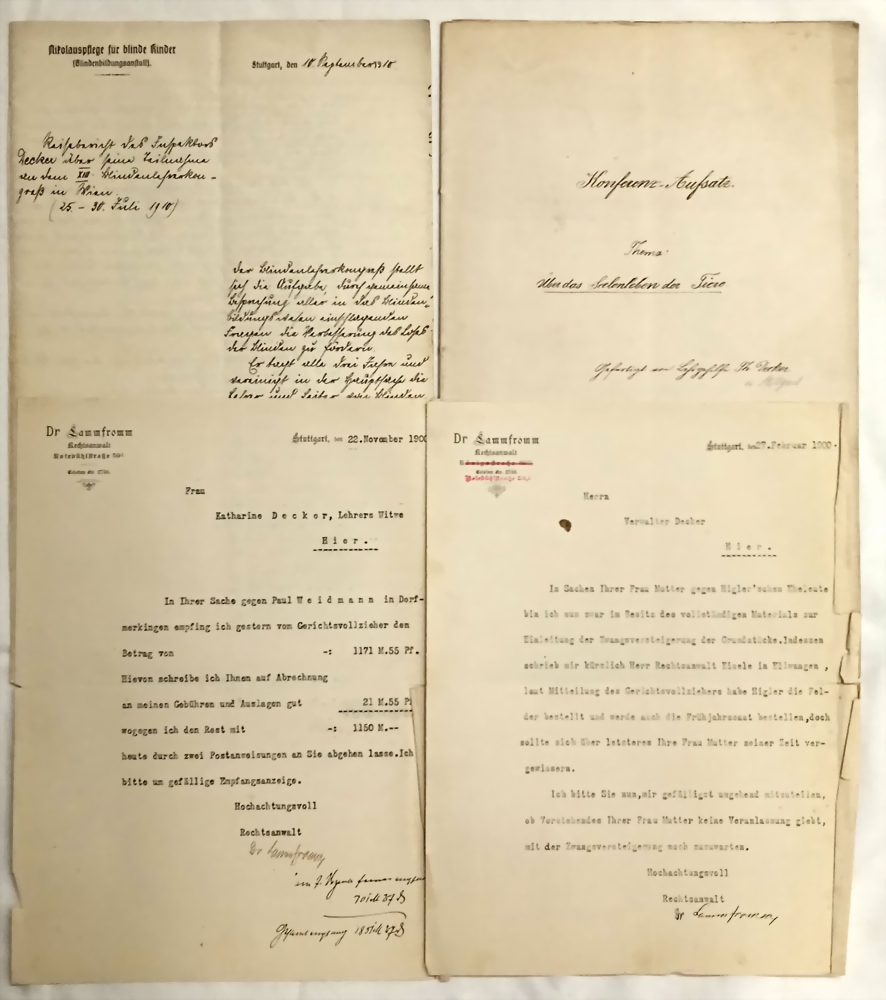 Nikolauspflege für blinde Kinder
(Blindenbildungsanstalt).
Stuttgart, den 10. September 1910
Reisebericht des Inspektors
Decker über seine Teilnahme
an dem XIII. Blindenlehrerkon-
greß in Wien.
(25. – 30. Juli 1910)
Der Blindenlehrerkongreß stellt
sich die Aufgabe, durch gemeinsame
Besprechung aller in das Blinden-
bildungswesen einschlagenden
Fragen die Verbesserung des Loses
der Blinden zu fördern.
Er tagt alle drei Jahre und
vereinigt in der Hauptsache die
Lehrer und Leiter von Blinden
Konferenz-Aufsatz.
Thema:
Über das Seelenleben der Tiere
Gefertigt von Lehrgehilfe Th. Decker
Dr Lammfromm
Rechtsanwalt
Rotebühlstraße
Telefon Nr.
Stuttgart, den 22.November 1900
Frau
Katharine Decker, Lehrers Witwe
Hier.
In Ihrer Sache gegen Paul Weidmann in Dorf-
merkingen empfing ich gestern vom Gerichtsvollzieher den
Betrag von -: 1171 M.55 Pf.
Hievon schreibe ich Ihnen auf Abrechnung
an meinen Gebühren und Auslagen gut 21 M.55 Pf
wogegen ich den Rest mit -: 1150 M.--
heute durch zwei Postanweisungen an Sie abgehen lasse.Ich
bitte um gefällige Empfangsanzeige.
Hochachtungsvoll
Rechtsanwalt
Dr Lammfromm
Dr Lammfromm
Rechtsanwalt
Königsstraße
Telefon Nr.
Rotebühlstraße
Stuttgart, den 27.Februar 1900.
Herrn
Verwalter Decker
Hier.
In Sachen Ihrer Frau Mutter gegen Higler'schen Eheleute
bin ich nun zwar im Besitz des vollständigen Materials zur
Einleitung der Zwangsversteigerung der Grundstücke.Indessen
schrieb mir kürzlich Herr Rechtsanwalt Eisele in Ellwangen ,
laut Mitteilung des Gerichtsvollziehers habe Higler die Fel-
der bestellt und werde auch die Frühjahrssaat bestellen,doch
sollte sich über letzteres Ihre Frau Mutter seiner Zeit ver-
gewissern.
Ich bitte Sie nun,mir gefälligst umgehend mitzuteilen,
ob Vorstehendes Ihrer Frau Mutter keine Veranlassung giebt,
mit der Zwangsversteigerung noch zuzuwarten.
Hochachtungsvoll
Rechtsanwalt
Dr Lammfromm